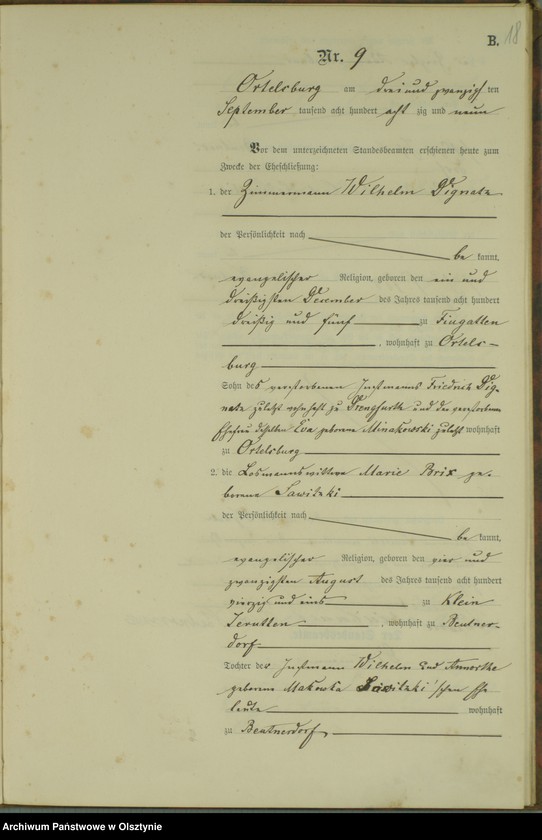 B. 18
Nr. 9
Ortelsburg am drei und zwanzigsten
September tausend acht hundert achtzig und neun
Vor dem unterzeichneten Standesbeamten erschienen heute zum
Zwecke der Eheschließung:
1. der Zimmermann Wilhelm Dignatz
der Persönlichkeit nach
be kannt,
evangelischer Religion, geboren den ein und
dreißigsten December des Jahres tausend acht hundert
dreißig und fünf zu Fingatten
, wohnhaft zu Ortels-
burg
Sohn des verstorbenen Instmanns Friedrich Dig-
natz zuletzt wohnhaft zu und der verstorbenen
Ehefrau desselben Eva geborene Minakowski zuletzt wohnhaft
zu Ortelsburg
2. die Losmannswittwe Marie Brix ge-
borene Sawitzki
der Persönlichkeit nach
be kannt,
evangelischer Religion, geboren den vier und
zwanzigsten August des Jahres tausend acht hundert
vierzig und eins zu Klein
Jerutten , wohnhaft zu Beutner-
dorf
Tochter der Instmann Wilhelm und
geborene Makowka Sawitzki'schen Ehe
leute wohnhaft
zu Beutnerdorf
Archiwum Państwowe w Olsztynie